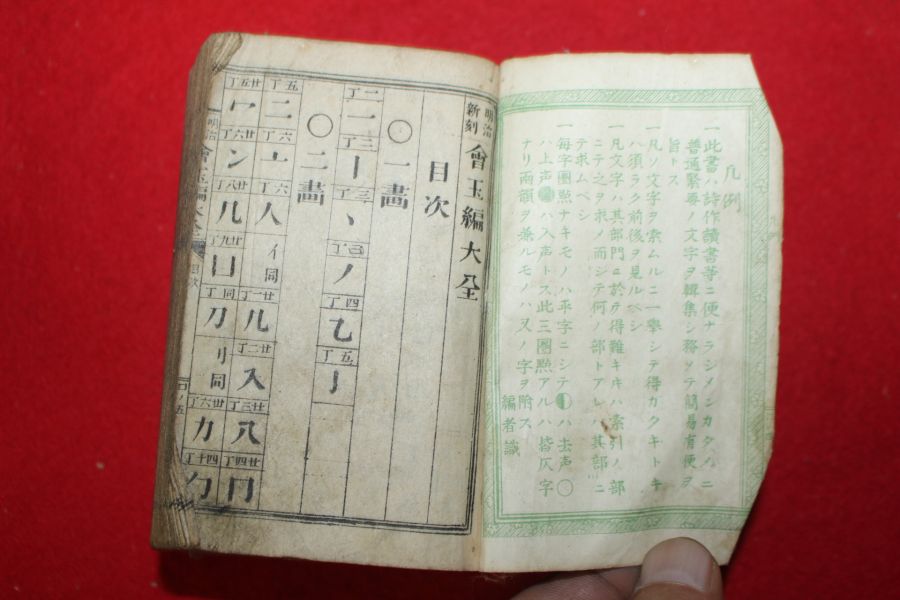 凡例
一此書ハ詩作讀書等ニ便ナラシメンカタメニ
普通緊要ノ文字ヲ輯集シ務メテ簡易有便ヲ
旨トス
一凡ソ文字ヲ索ムルニ一擧シテ得カクキトキ
ハ須ラク前後ヲ見ルベシ
一凡文字ハ其部門ニ於テ得難キヰハ索引ノ部
ニテ之ヲ求メ而シテ何ノ部トアレハ其部ニ
テ求ムベシ
一毎字圏照ナキモノハ平字ニシテ◐ハ去声○
ハ上声 ハ入声トス此三圏照アルハ皆仄字
ナリ兩韻ヲ兼ルモノハ又ノ字ヲ附ス
編者識
明治新刻 會玉編大全
目次
○一畫
二丁 一 三丁 丨 三丁 丶 丁 ノ 四丁 乙 五丁 亅
○二畫
五丁 二 六丁 亠 六丁 人 亻同 廿一丁 儿 廿二丁 入 廿三丁 八 廿四丁 冂
廿五丁 冖 廿六丁 冫 廿八丁 几 廿九丁 凵 同丁 刀 刂同 卅六丁 力 四十丁 勹
明治 會玉編大全 目次